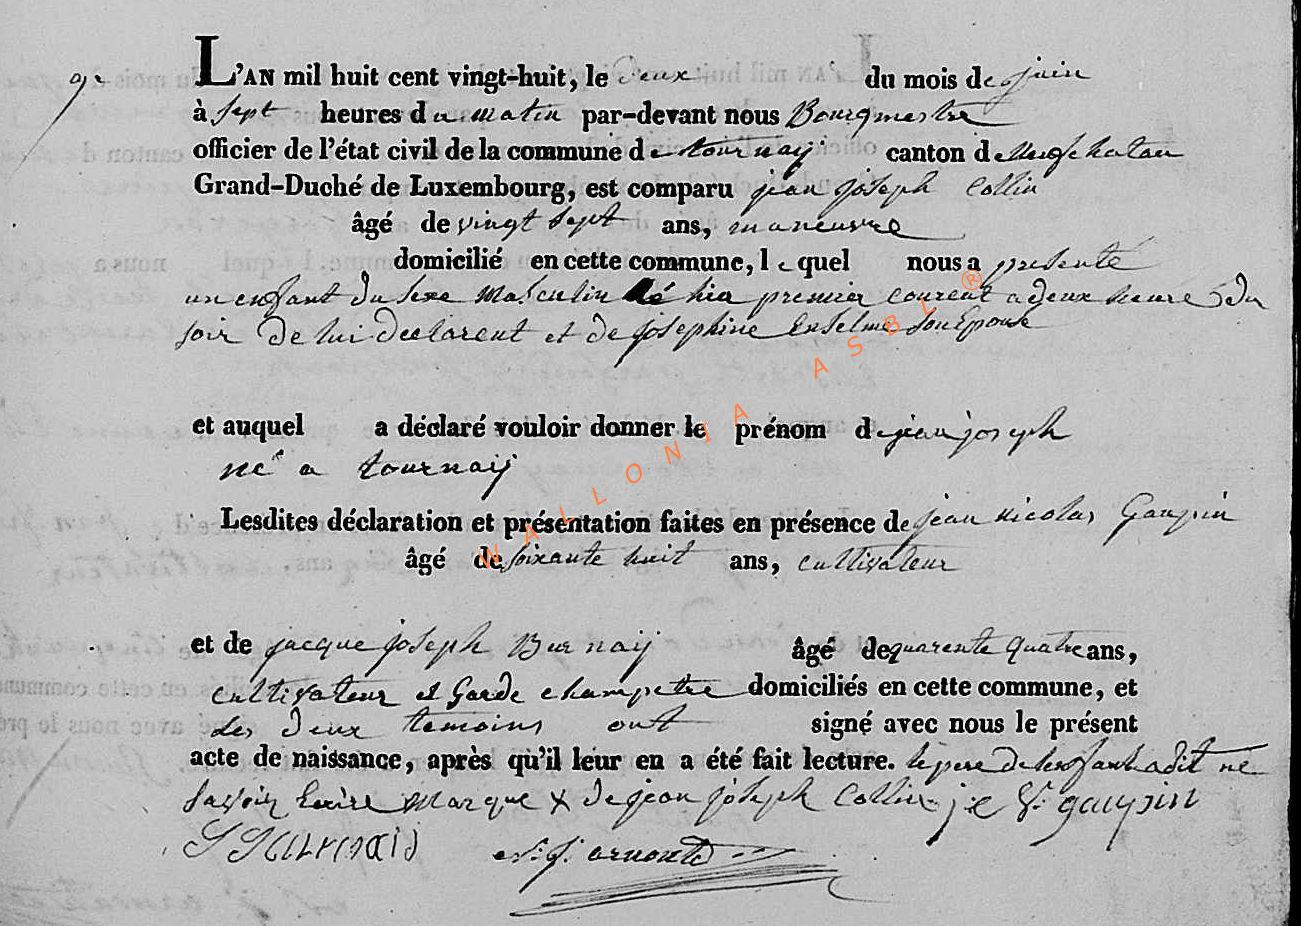 9e
L'AN mil huit cent vingt-huit, le deux du mois de juin
à sept heures du matin par-devant nous Bourgmestre
officier de l'état civil de la commune de tournaÿ canton de Neufchatau
Grand-Duché de Luxembourg, est comparu jean joseph Collin
âgé de vingt sept ans, maneuvre
domicilié en cette commune, lequel nous a presenté
un enfant du sexe masculin né hier premier courent a deux heure du
soir de lui declarent et de josephine Enselme son Epouse
et auquel a déclaré vouloir donner le prénom de jean joseph
né a tournaÿ
Lesdites déclaration et présentation faites en présence de jean nicolas Gaupin
âgé de soixante huit ans, cultivateur
et de jacque joseph Burnaÿ âgé de quarente quatre ans,
cultivateur et Garde champetre domiciliés en cette commune, et
les deux temoins ont signé avec nous le présent
acte de naissance, après qu'il leur en a été fait lecture. le pere de lenfant a dit ne
savoir Ecrire marque x de jean joseph Collin j N gaupin
WALLONIA ASBL ®